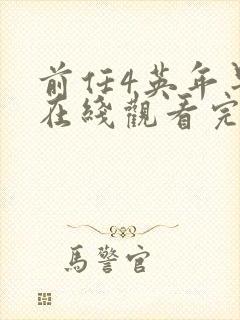 前任4英年
在綫觀看完
馬警官